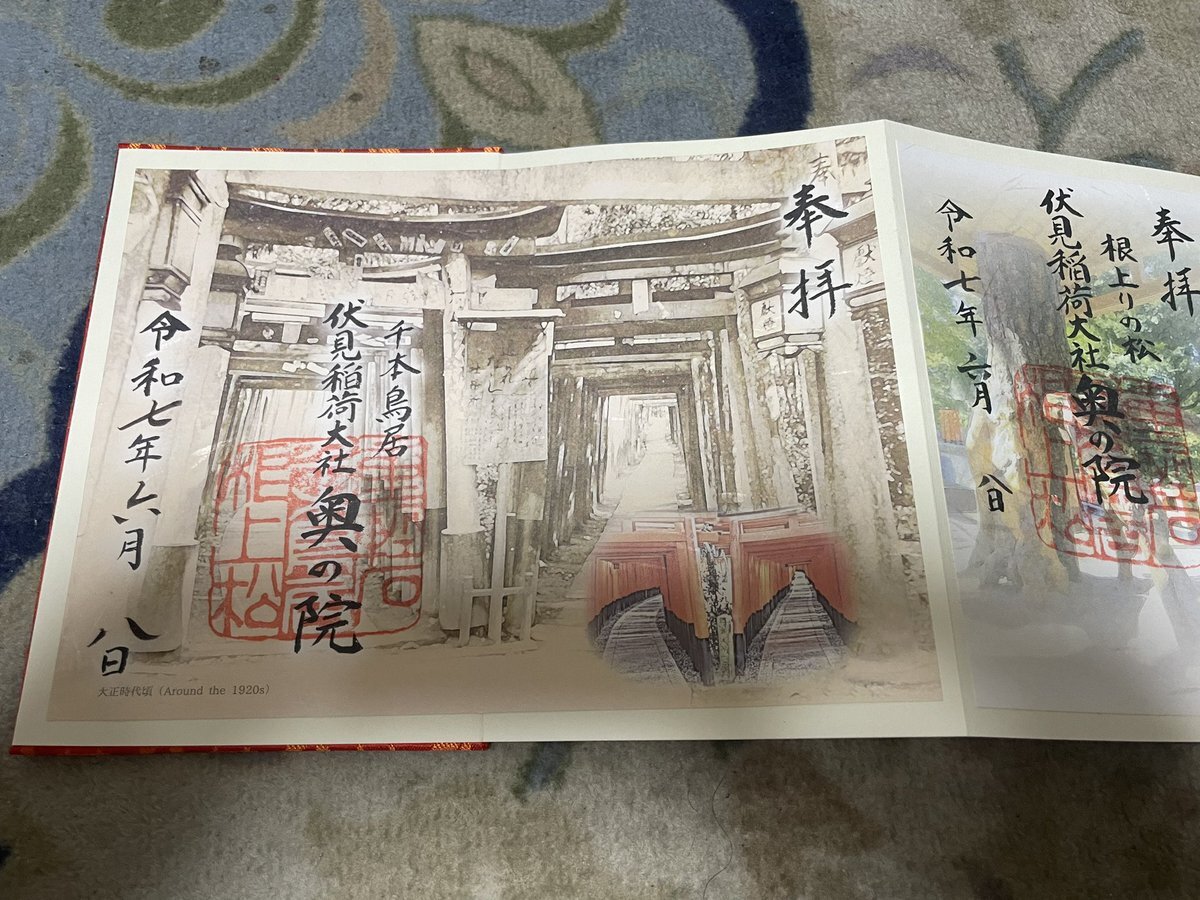 奉拝
根上りの松
伏見稲荷大社奥の院
令和七年六月八日
奉拝
千本鳥居
伏見稲荷大社奥の院
令和七年六月八日
根上松
大正時代頃（Around the 1920s）